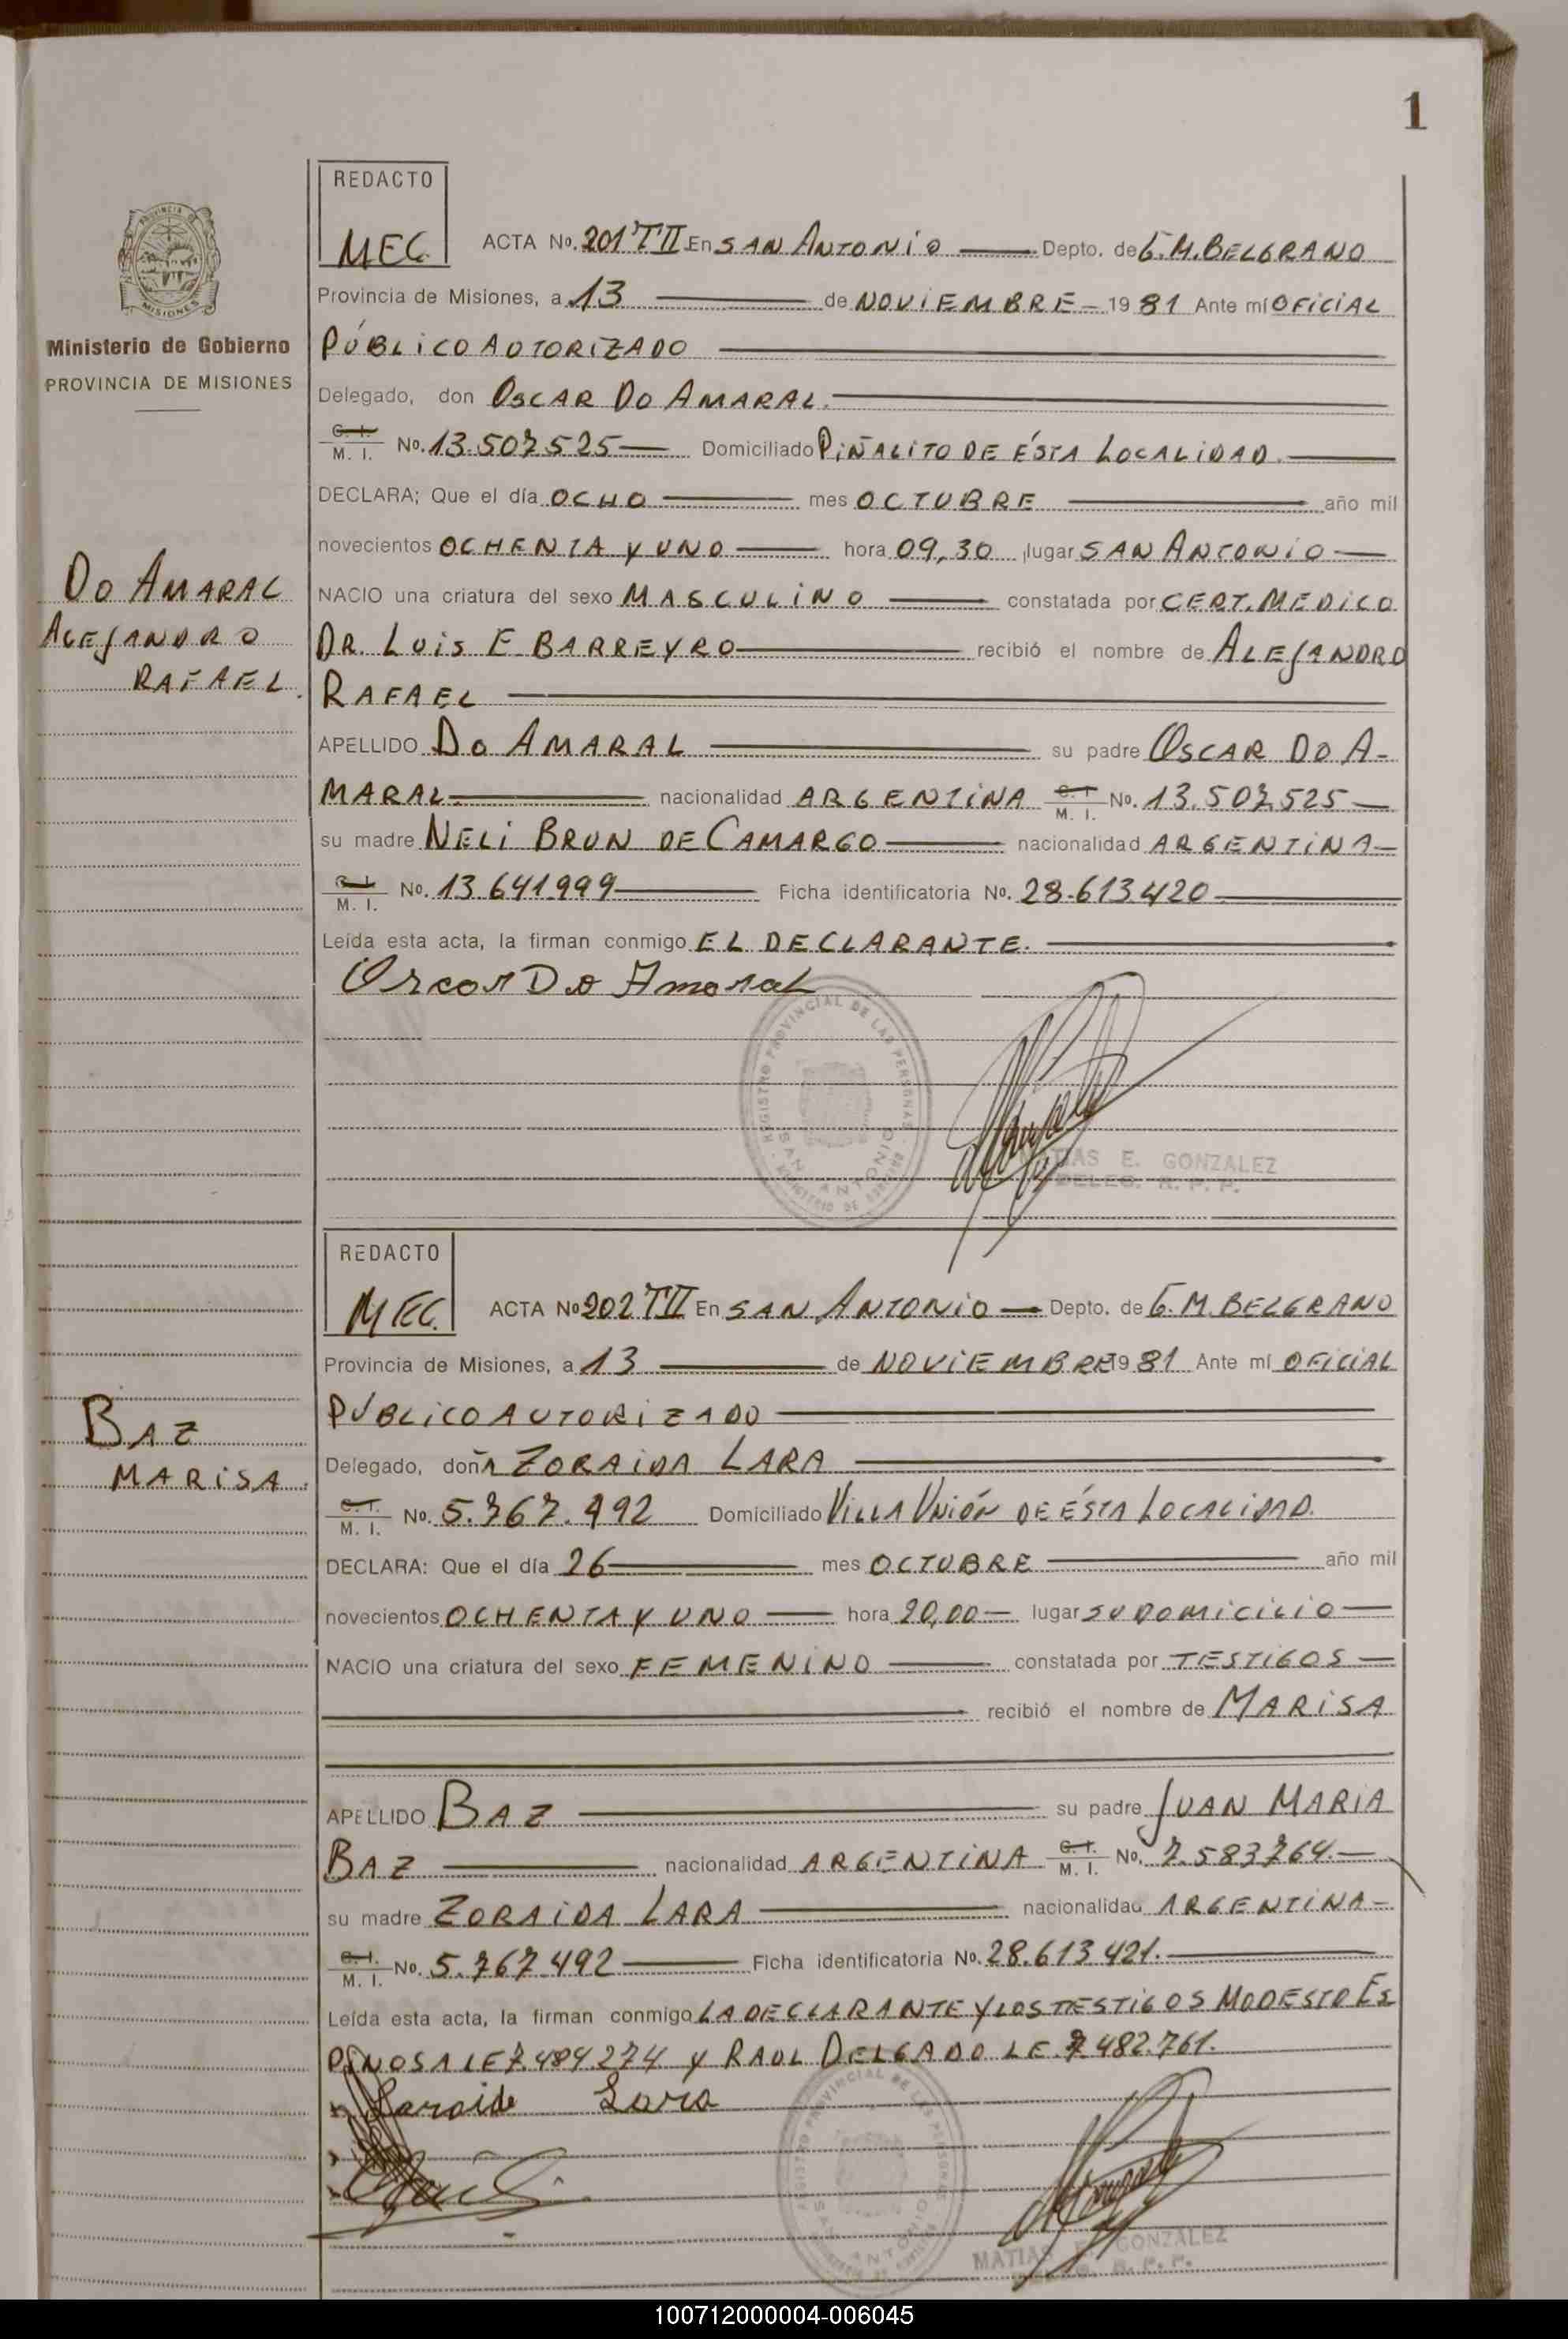 1
PROVINCIA DE
MISIONES
Ministerio de Gobierno
PROVINCIA DE MISIONES
REDACTO
MEC. ACTA No. 201 TII En SAN ANTONIO Depto. de G.M. BELGRANO
Provincia de Misiones, a 13 de NOVIEMBRE - 19 81 Ante mí OFICIAL
PÚBLICO AUTORIZADO
Delegado, don OSCAR DO AMARAL.
C. I.
M. I. No. 13.507.525 Domiciliado PIÑALITO DE ÉSTA LOCALIDAD.
DECLARA; Que el día OCHO mes OCTUBRE año mil
novecientos OCHENTA Y UNO hora 09,30 lugar SAN ANTONIO
DO AMARAL
ALEJANDRO
RAFAEL.
NACIO una criatura del sexo MASCULINO constatada por CERT. MEDICO
DR. LUIS E BARREYRO recibió el nombre de ALEJANDRO
RAFAEL
APELLIDO DO AMARAL su padre OSCAR DO A-
MARAL. nacionalidad ARGENTINA C. I. M. I. No. 13.507.525
su madre NELI BRUN DE CAMARGO nacionalidad ARGENTINA
C. I.
M. I. No. 13.641.999 Ficha identificatoria No. 28.613.420
Leída esta acta, la firman conmigo EL DECLARANTE.
Oscar Do Amaral
REGISTRO PROVINCIAL DE LAS PERSONAS
SAN ANTONIO
MINISTERIO DE GOBIERNO
IAS E. GONZALEZ
DELEG. R. P. P.
REDACTO
MEC. ACTA No 202 TII En SAN ANTONIO Depto. de G.M. BELGRANO
Provincia de Misiones, a 13 de NOVIEMBRE 19 81 Ante mí OFICIAL
PÚBLICO AUTORIZADO
BAZ
MARISA.
Delegado, doñA ZORAIDA LARA
C. I.
M. I. No. 5.767.492 Domiciliado VILLA UNIÓN DE ÉSTA LOCALIDAD.
DECLARA: Que el día 26 mes OCTUBRE año mil
novecientos OCHENTA Y UNO hora 20,00 lugar SU DOMICILIO
NACIO una criatura del sexo FEMENINO constatada por TESTIGOS
recibió el nombre de MARISA
APELLIDO BAZ su padre JUAN MARIA
BAZ nacionalidad ARGENTINA C. I. M. I. No. 7.583.764.
su madre ZORAIDA LARA nacionalidad ARGENTINA
C. I.
M. I. No. 5.767.492 Ficha identificatoria No. 28.613.421.
Leída esta acta, la firman conmigo LA DECLARANTE Y LOS TESTIGOS MODESTO ES
PINOSA LE 7.484.274 Y RAUL DELGADO LE 7.482.761.
Zoraida Lara
MATIAS E GONZALEZ
100712000004-006045